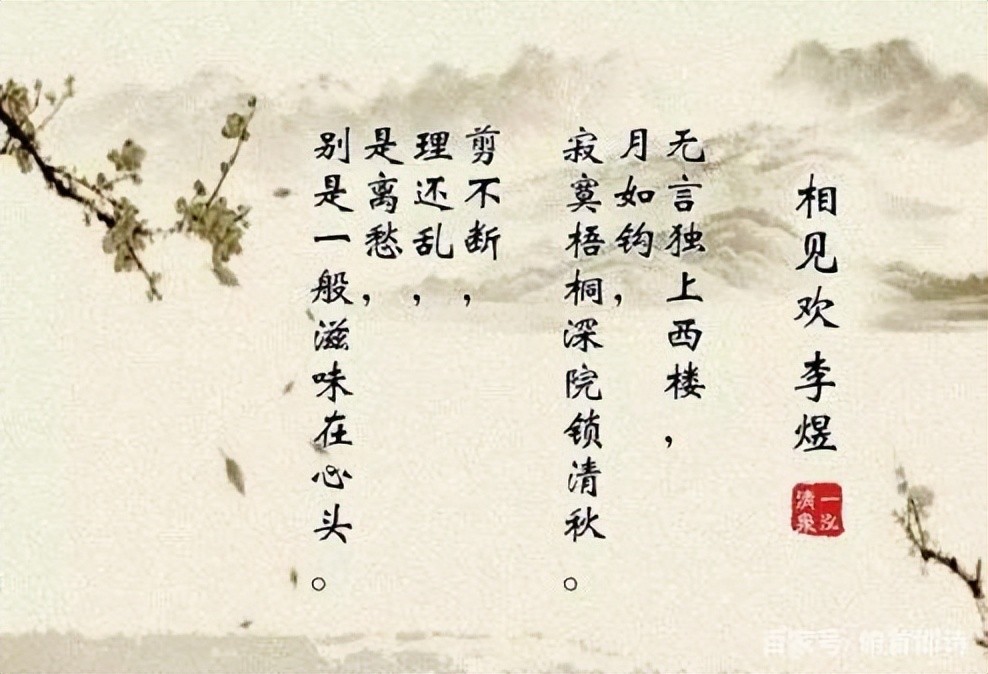 相见欢 李煜
一泓
清泉
无言独上西楼，
月如钩，
寂寞梧桐深院锁清秋。
剪不断，
理还乱，
是离愁，
别是一般滋味在心头。
百家号/